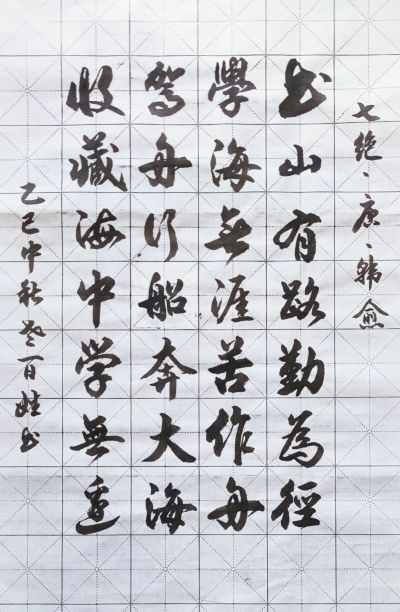 七绝、唐、韩愈
书山有路勤為徑
學海無涯苦作舟
驾舟行船奔大海
收藏海中学無边
乙巳中秋老百姓书